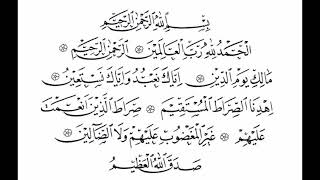 بِسْمِ اللهِ الرَّحْمٰنِ الرَّحِيْمِ
اَلْحَمْدُ لِلّٰهِ رَبِّ الْعَالَمِيْنَ ۞ اَلرَّحْمٰنِ الرَّحِيْمِ ۞
مَالِكِ يَوْمِ الدِّيْنِ ۞ اِيَّاكَ نَعْبُدُ وَاِيَّاكَ نَسْتَعِيْنُ ۞
اِهْدِنَا الصِّرَاطَ الْمُسْتَقِيْمَ ۞ صِرَاطَ الَّذِيْنَ اَنْعَمْتَ
عَلَيْهِمْ ۞ غَيْرِ الْمَغْضُوْبِ عَلَيْهِمْ وَلَا الضَّالِّيْنَ ۞
صَدَقَ اللهُ الْعَظِيْمُ